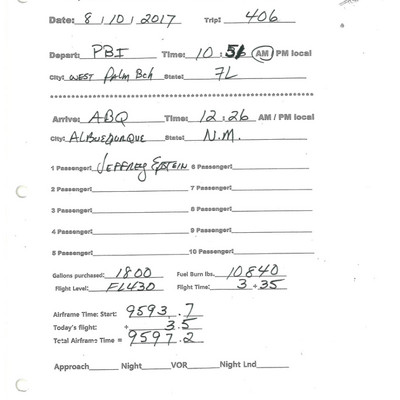 Date: 8/10/2017 Trip: 406
Depart: PBI Time: 10:56 AM / PM local
City: WEST Palm Bch State: FL
Arrive: ABQ Time: 12:26 AM / PM local
City: ALBUQUERQUE State: N.M.
1 Passenger: JEFFREY EPSTEIN 6 Passenger:
2 Passenger: 7 Passenger:
3 Passenger: 8 Passenger:
4 Passenger: 9 Passenger:
5 Passenger: 10 Passenger:
Gallons purchased: 1800 Fuel Burn lbs. 10840
Flight Level: FL430 Flight Time: 3+35
Airframe Time: Start: 9593.7
Today's flight: + 3.5
Total Airframe Time = 9597.2
Approach Night VOR Night Lnd